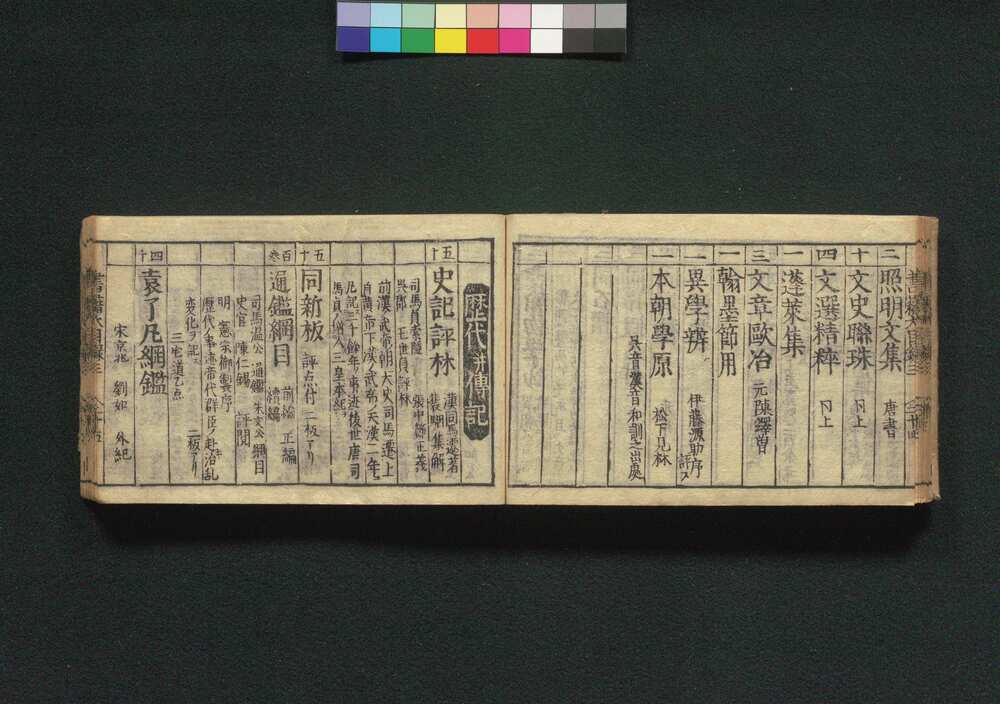 二 照明文集 唐書
十 文史聯珠 同上
四 文選精粹 同上
一 蓬萊集
三 文章歐冶 元陳繹曽
一 翰墨節用
一 異學辨 伊藤源助序 評入
一 本朝學原 松下見林
呉音漢音和訓之出處
歴代并傳記
五十 史記評林 漢司馬遷著 裴駰集解
司馬貞索隱 張守節正義
呉郡 王世貞評林
前漢武帝朝大史司馬遷上
自黄帝下漢ノ武帝天漢二年
凡記三千餘年ノ事迹後世唐司
馬貞補入三皇本紀
五十 同新板 評点付 二板アリ
百巻 通鑑綱目 前編 正編 續編
司馬温公ノ通鑑 朱文公ノ綱目
史官 陳仁錫 評閲
明 憲宗御製序
歴代ノ事迹帝代群臣ノ起治乱
変化ヲ記 二板アリ
三宅道乙点
四十 袁了凡綱鑑
宋京兆 劉恕 外紀